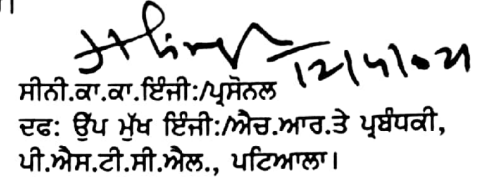 12/4/2021
ਸੀਨੀ.ਕਾ.ਕਾ.ਇੰਜੀ:/ਪ੍ਰਸੋਨਲ
ਦਫ: ਉੱਪ ਮੁੱਖ ਇੰਜੀ:/ਐਚ.ਆਰ.ਤੇ ਪ੍ਰਬੰਧਕੀ,
ਪੀ.ਐਸ.ਟੀ.ਸੀ.ਐਲ., ਪਟਿਆਲਾ।